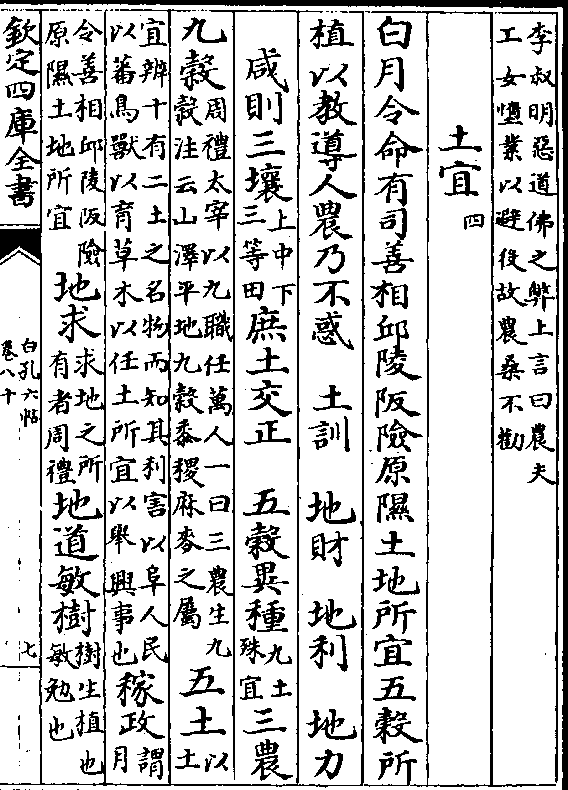 李叔明惡道佛之弊上言曰農夫
工女墮業以避役故農桑不勸
土宜四
白月令命有司善相邱陵阪險原隰土地所宜五穀所
植以教導人農乃不惑　土訓　地財　地利　地力
咸則三壤上中下三等田庶土交正　五穀異種九土殊宜三農
九穀周禮太宰以九職任萬人一曰三農生九穀注云山澤平地九穀黍稷麻麥之屬五土以土
宜辨十有二土之名物而知其利害以阜人民以蕃鳥獸以育草木以任土所宜以舉興事也稼政謂月
令善相邱陵阪險原隰土地所宜地求求地之所有者周禮地道敏樹樹生植也敏勉也
欽定四庫全書
白孔六帖
卷八十
七